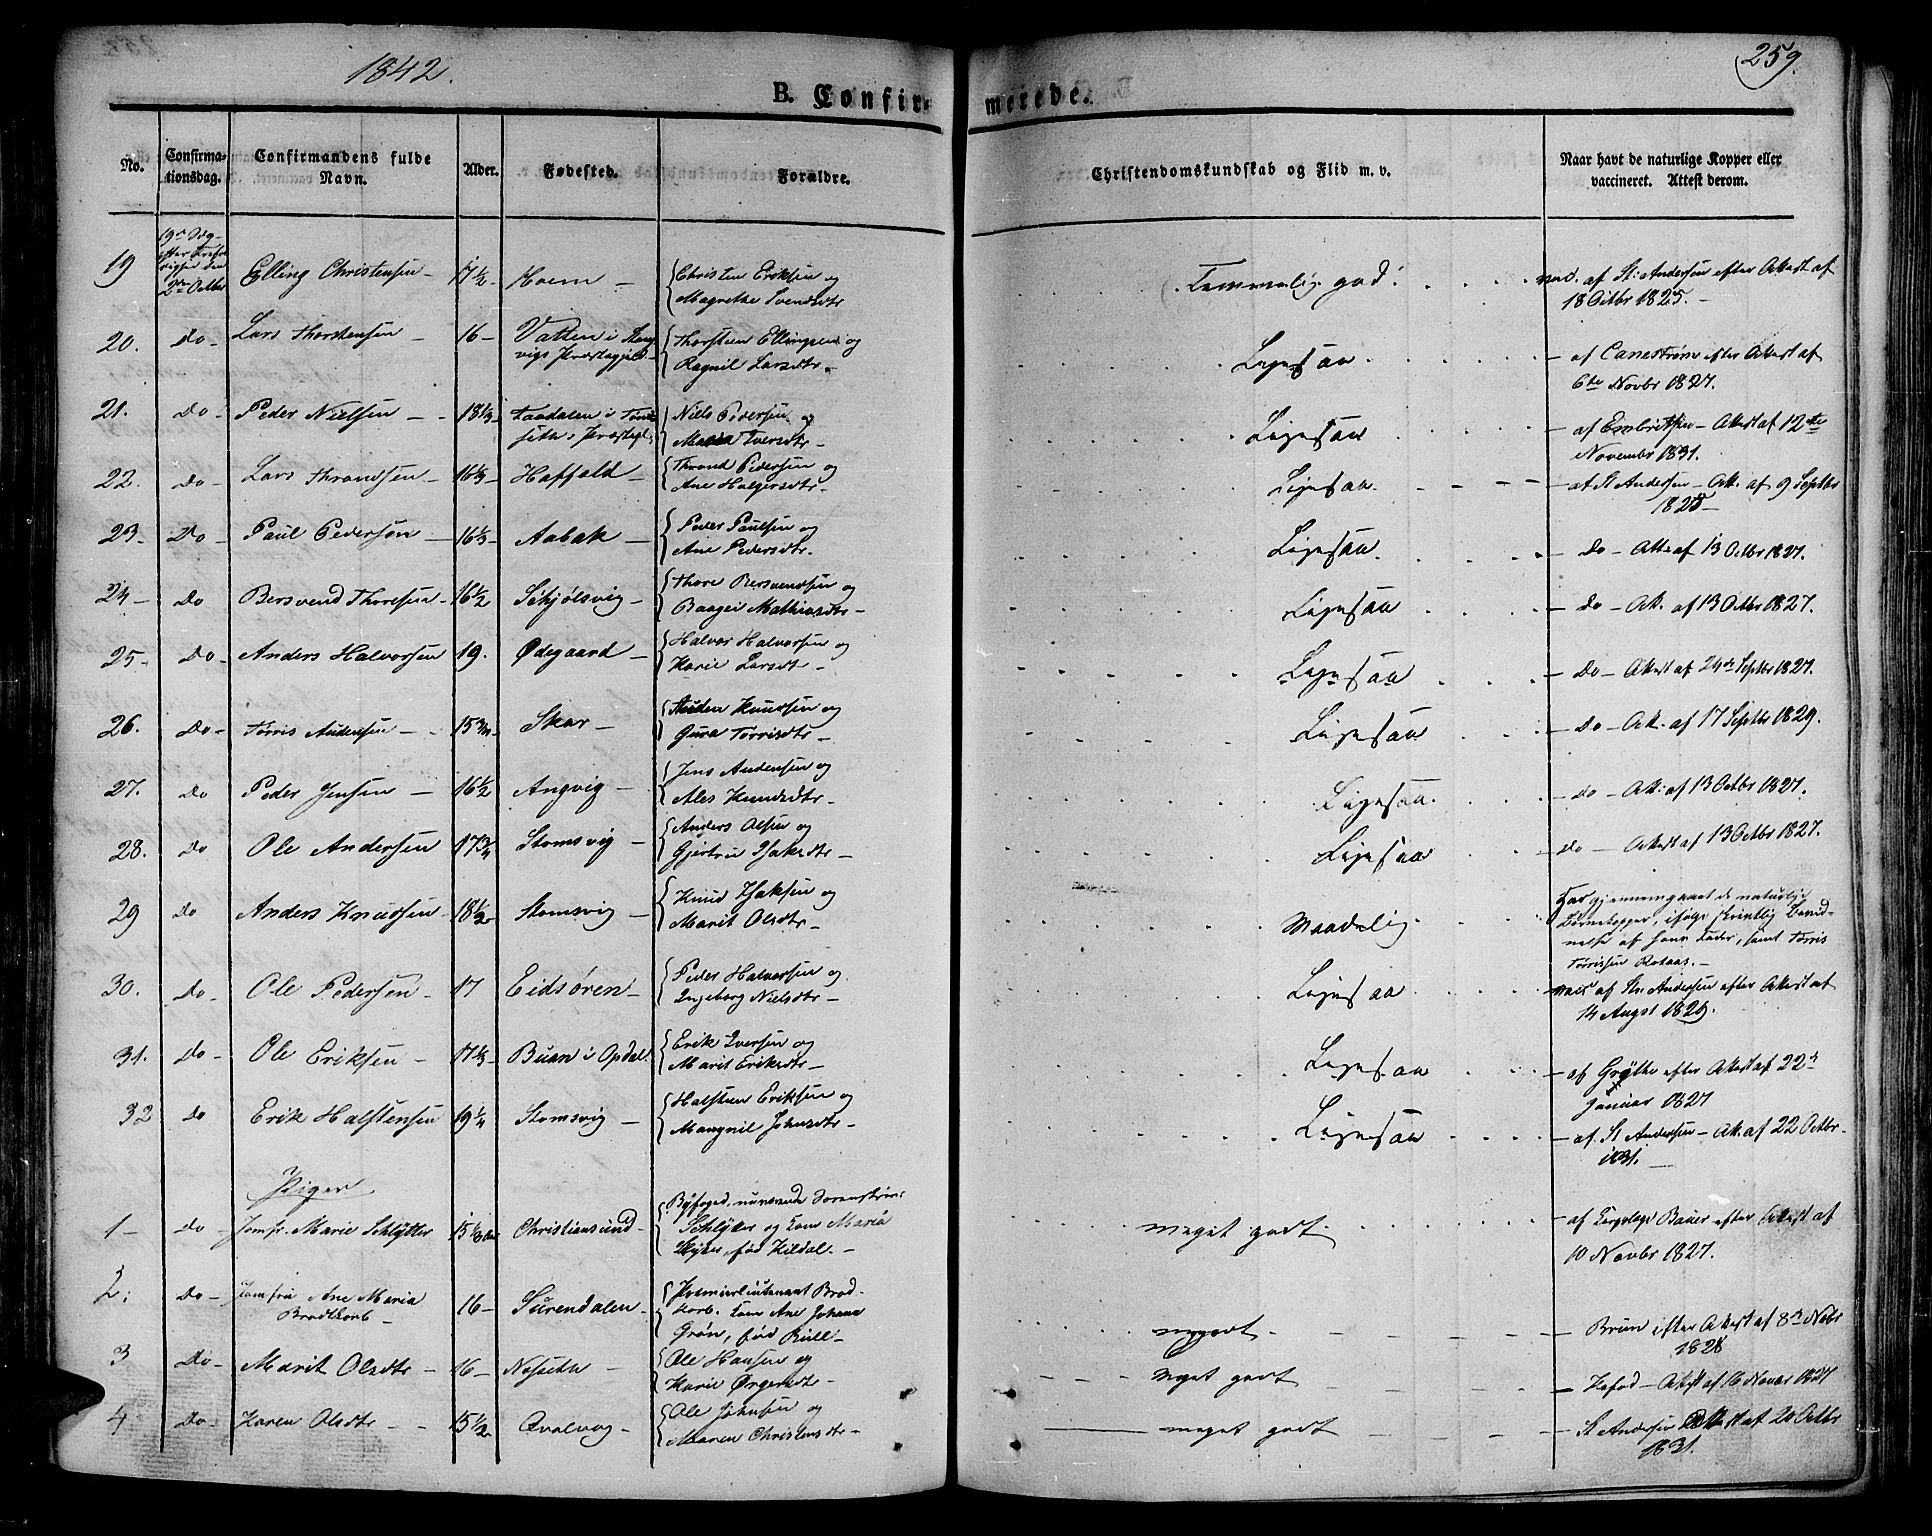 1842.
259.
B. Confir-
merede.
No.
Confirma-
tionsdag.
Confirmandens fulde
Navn.
Alder.
Fødested.
Forældre.
Christendomskundskab og Flid m. v.
Naar havt de naturlige Kopper eller
vaccineret. Attest derom.
19 Elling Christensen 17 1/2 Hoem Christen Eriksen og
Magrethe Svendsdtr Temmelig god. vac. af St: Andersen efter Attest af
18 Octbr 1825.
20. Do Lars Thorstensen 16 Vatten i Stang-
vigs Præstegjeld Thorsten Ellingsen og
Ragnil Larsdtr. Ligesaa af Canestrøm efter Attest af
6te Novbr 1827.
21. Do Peder Nielsen 18 1/3 Niels Pedersen og
Iversdtr Ligesaa af Attest af 12te
Novembr 1831.
22. Do Lars Throndsen 16 1/3 Haffeld Thrond Pedersen og
Ane Holgersdtr Ligesaa. af St Andersen Att. af 9 Septbr
1828
23. Do Paul Pedersøn 16 1/3 Aabak Peder Paulsen og
Ane Pedersdtr. Ligesaa Do Att. af 13 Octbr 1827.
24 Do Bersvend Thoresen 16 1/2 Schjølsvig Thore Bersvendsen og
Baagei Mathiasdtr Ligesaa Do Att. af 13 Octbr 1827.
25 Do Anders Halvorsen 19. Ødegaard Halvor Halvorsen og
Karie Larsdtr Ligesaa Do Attest af 24de Septbr 1827.
26. Do Tørris Audensen 15 3/4 Skar Auden Knudsen og
Gura Tørrisdtr Ligesaa Do Att. af 17 Septbr 1829.
27. Do Peder Jensen 16 1/2 Angvig Jens Andersen og
Ales Knudsdtr Ligesaa. Do Att: af 13 Octbr 1827.
28. Do Ole Andersen 17 3/4 Stomsvig Anders Olsen og
Gjertru Isaksdtr Ligesaa Do Attest af 13 Octbr 1827.
29 Do Anders Knudsen 18 1/2 Stomsvig Knud Isaksen og
Marit Olsdtr Maadelig. Har gjennemgaaet de naturlige
Børnekopper, ifølge skriftlig Bevid-
nelse af hans Fader, samt Tørris
Tørrissen Rotaas.
30. Do Ole Pedersen 17 Eidsøren Peder Halvorsen og
Ingeborg Nielsdtr Ligesaa vacc af St. Andersen efter Attest af
14 Augst 1829.
31. Do Ole Eriksen 17 1/3 Buan i Opdal. Erik Iversen og
Marit Eriksdtr Ligesaa af Grøthe efter Attest af 22de
Januar 1827
32 Do Erik Halstensen 19 1/4 Stomsvig Halsten Eriksen og
Maagnil Johnsdtr Ligesaa af St Andersen Att. af 22 Octbr
1831.
Piger
1 Do Jomfr. Marie Schlytter 15 Christiansund Byfoged, nuværende Sorenskriv:
Schlytter og Dame Maria
født Kildal. meget godt af Bauer efter Attest af
10 Novbr 1827.
2: Do Jomfru Ane Maria
Brodtkorb 16 Surendalen Premierlieutenant Brod-
korb. Dame Ane Johanna
Grøn, fød Bull megodt Bruun efter Attest af 8de Nobr
1828
3 Do Marit Olsdtr 16 Naseth Ole Hansen og
Karie Ørgensdtr Meget godt Attest af 16 Novbr 1827
4 Do Karen Olsdtr 15 1/2 Qvalvog Ole Johnsen og
Maren Christensdtr meget godt St Andersen Attest af 20 Octbr
1831.